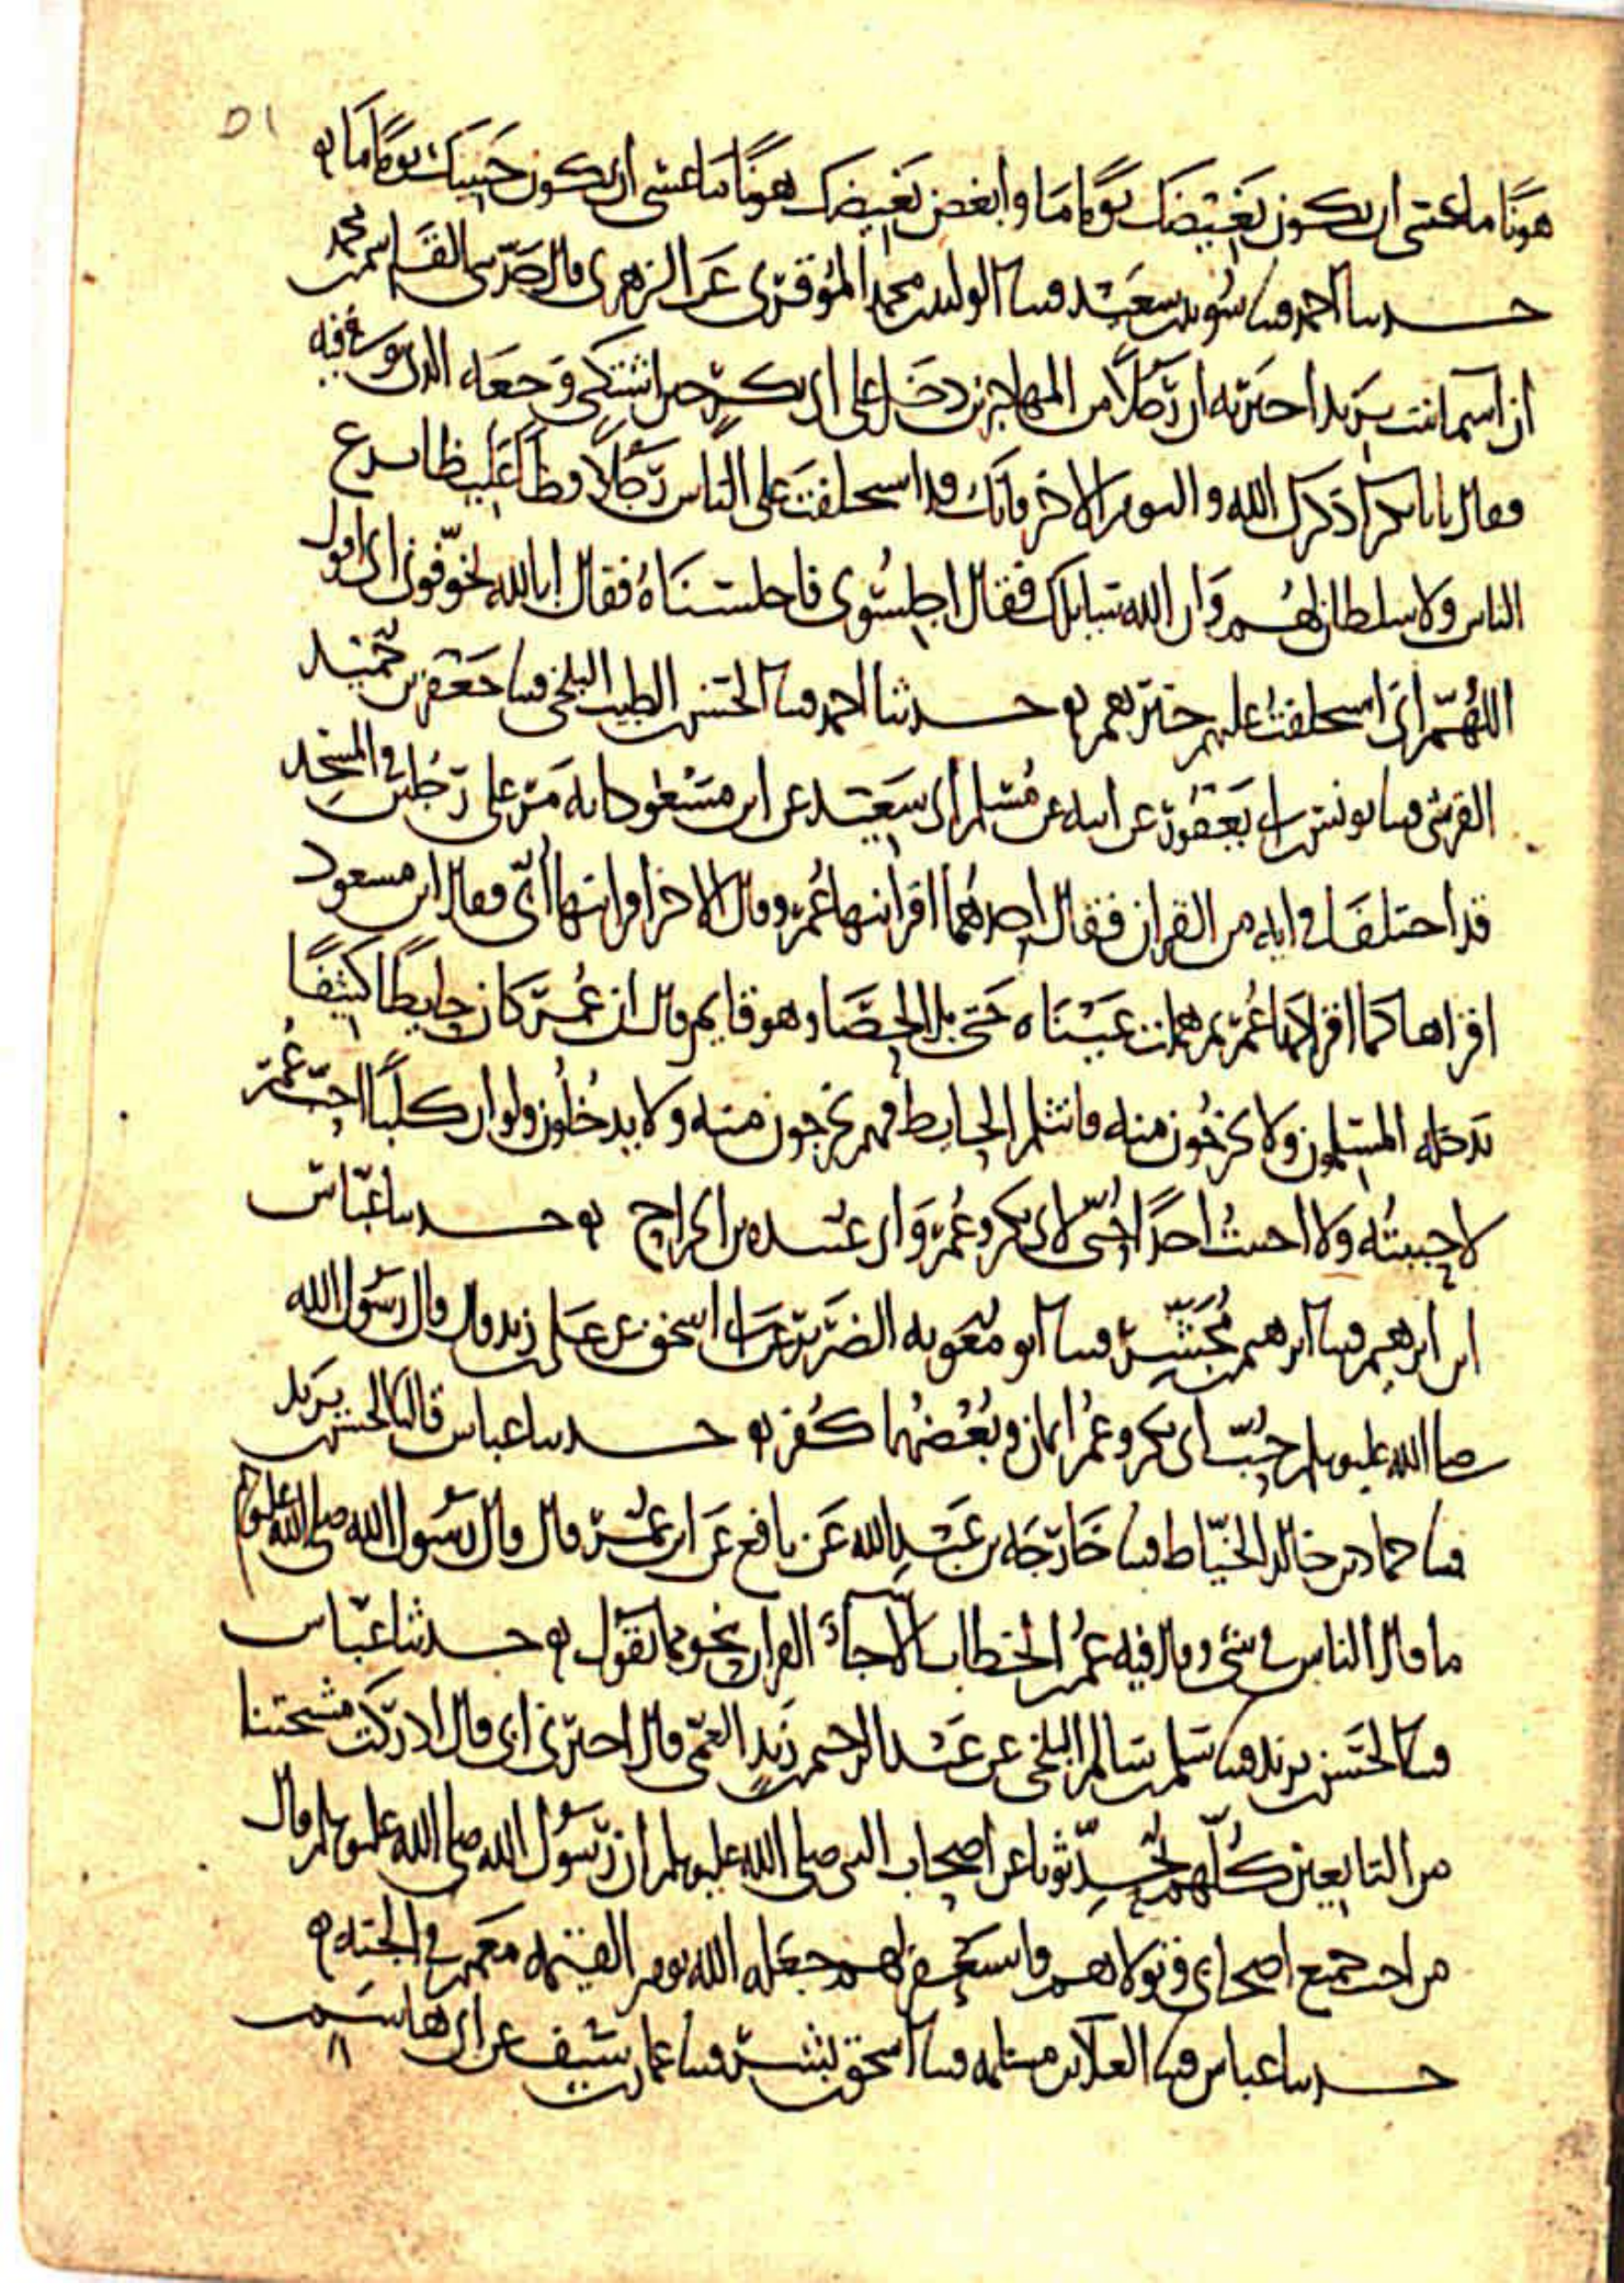 ٥١
هونًا ما عسى ان يكون بغيضك يومًا ما وابغض بغيضك هونًا ما عسى ان يكون حبيبك يومًا ما
حدثنا احمد قثنا سويد بن سعيد قثنا الوليد بن محمد الموقري عن الزهري قال حدثني القاسم بن محمد
ان اسما بنت يزيد اخبرته ان رجلًا من المهاجرين دخل على ابي بكر حين اشتكى وجعه الذي توفي فيه
فقال يابا بكر اذكرك الله واليوم الاخر فانك قد استخلفت على الناس رجلًا فظًا غليظًا يزع
الناس ولا سلطان لهم وان الله سايلك فقال اجلسوني فاجلسناه فقال ابالله تخوفوني اني اقول
اللهم اني استخلفت عليهم خيرهم حدثنا احمد قثنا الحسن بن الطيب البلخي قثنا جعفر بن حميد
القرشي قثنا يونس بن ابي يعفور عن ابيه عن مسلم ابي سعيد عن ابن مسعود انه مر على رجلين في المسجد
قد اختلفا في ايه من القران فقال احدهما اقرانيها عمر وقال الاخر اقرانيها ابي فقال ابن مسعود
اقراها كما اقراكها عمر ثم هملت عيناه حتى بل الحصا وهو قايم قال ان عمر كان حايطًا كثيفًا
يدخله المسلمون ولا يخرجون منه فانثلم الحايط فهم يخرجون منه ولا يدخلون ولو ان كلبًا احب عمر
لاحببته ولا احببت احدًا حبي لابي بكر وعمر وابي عبيده بن الجراح حدثنا عباس
ابن ابرهيم قثنا ابرهيم بن مجشر قثنا ابو معويه الضرير عن ابي اسحق عن علي بن زيد قال قال رسول الله
صلى الله عليه وسلم حب ابي بكر وعمر ايمان وبغضهما كفر حدثنا عباس قال نا الحسن بن يزيد
قثنا حماد بن خالد الخياط قثنا خارجه بن عبد الله عن نافع عن ابن عمر قال قال رسول الله صلى الله عليه وسلم
ما قال الناس في شي وقال فيه عمر بن الخطاب الا جا القران بنحو مما يقول حدثنا عباس
قثنا الحسن بن يزيد قثنا سلم بن سالم البلخي عن عبد الرحيم بن زيد العمي قال اخبرني ابي قال ادركت مشيختنا
من التابعين كلهم يحدثونا عن اصحاب النبي صلى الله عليه وسلم ان رسول الله صلى الله عليه وسلم قال
من احب جميع اصحابي وتولاهم واستغفر لهم جعله الله يوم القيمه معهم في الجنه
حدثنا عباس قثنا العلا بن مسلمه قثنا اسحق بن بشر قثنا عمار بن سيف عن ابي هاشم